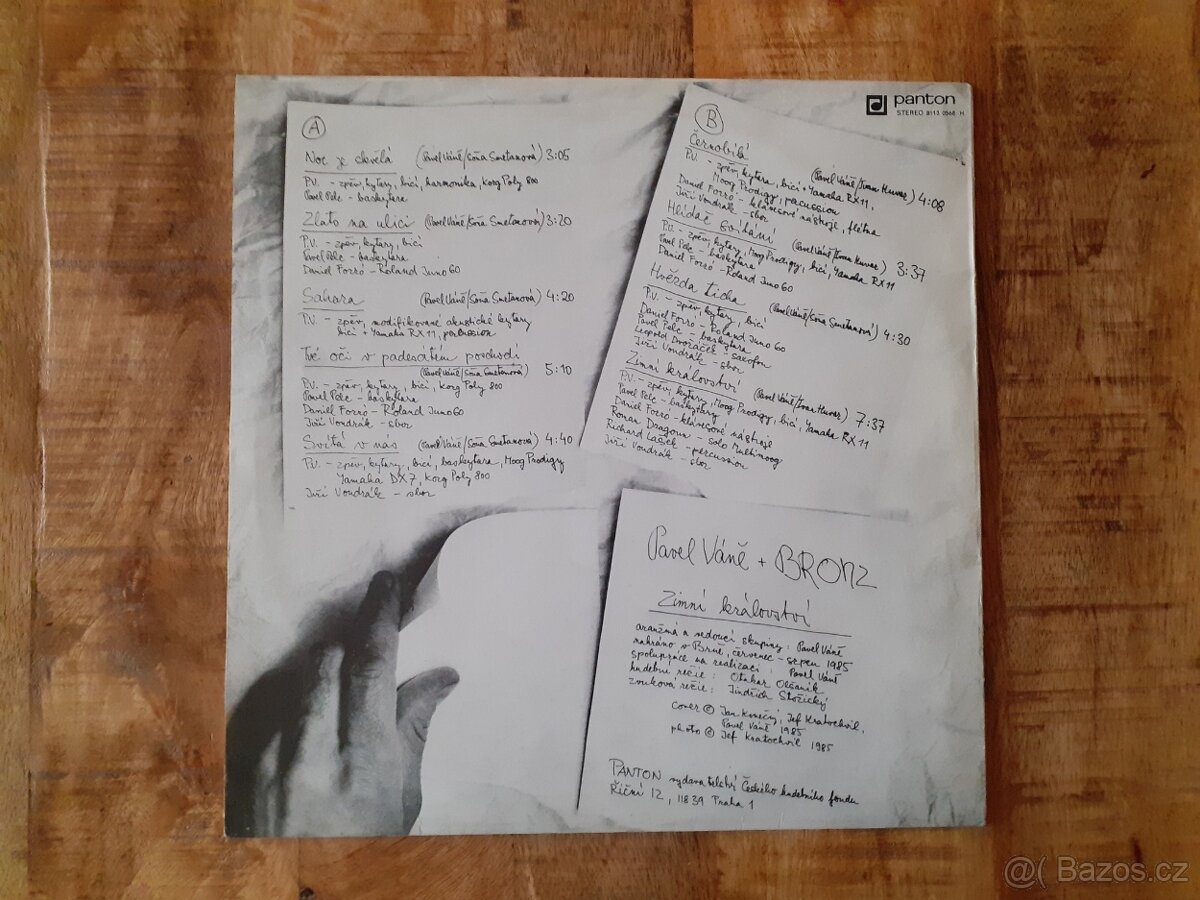 panton
STEREO 8113 0568 H
A
Noc je skvělá (Pavel Váně/Soňa Smetanová) 3:05
P.V. - zpěv, kytary, bicí, harmonika, Korg Poly 800
Pavel Pelc - baskytara
Zlato na ulici (Pavel Váně/Soňa Smetanová) 3:20
P.V. - zpěv, kytary, bicí
Pavel Pelc - baskytara
Daniel Forró - Roland Juno 60
Sahara (Pavel Váně/Soňa Smetanová) 4:20
P.V. - zpěv, modifikované akustické kytary
bicí + Yamaha RX 11, percussion
Tvé oči v padesátém poschodí
(Pavel Váně/Soňa Smetanová) 5:10
P.V. - zpěv, kytary, bicí, Korg Poly 800
Pavel Pelc - baskytara
Daniel Forró - Roland Juno 60
Jiří Vondrák - sbor
Svítá v nás (Pavel Váně/Soňa Smetanová) 4:40
P.V. - zpěv, kytary, bicí, baskytara, Moog Prodigy
Yamaha DX7, Korg Poly 800
Jiří Vondrák - sbor
B
Černobílá (Pavel Váně/Ivan Huvar) 4:08
P.V. - zpěv, kytara, bicí + Yamaha RX 11,
Moog Prodigy, percussion
Daniel Forró - klávesové nástroje, flétna
Jiří Vondrák - sbor
Hlídač svítání (Pavel Váně/Ivan Huvar) 3:37
P.V. - zpěv, kytary, Moog Prodigy, bicí, Yamaha RX 11
Pavel Pelc - baskytara
Daniel Forró - Roland Juno 60
Hvězda ticha (Pavel Váně/Soňa Smetanová) 4:30
P.V. - zpěv, kytary, bicí
Daniel Forró - Roland Juno 60
Pavel Pelc - baskytara
Leopold Dvořáček - saxofon
Jiří Vondrák - sbor
Zimní království (Pavel Váně/Ivan Huvar) 7:37
P.V. - zpěv, kytary, Moog Prodigy, bicí, Yamaha RX 11
Pavel Pelc - baskytary
Daniel Forró - klávesové nástroje
Roman Dragoun - solo Multimoog
Richard Lašek - percussion
Jiří Vondrák - sbor
Pavel Váně + BRONZ
Zimní království
aranžmá a vedoucí skupiny: Pavel Váně
nahráno v Brně, červenec - srpen 1985
spolupráce na realizaci: Pavel Váně
hudební režie: Otakar Olšaník
zvuková režie: Jindřich Stožický
cover © Jan Konečný, Jef Kratochvil,
Pavel Váně 1985
photo © Jef Kratochvil 1985
PANTON vydavatelství Českého hudebního fondu
Říční 12, 118 39 Praha 1
@( Bazos.cz